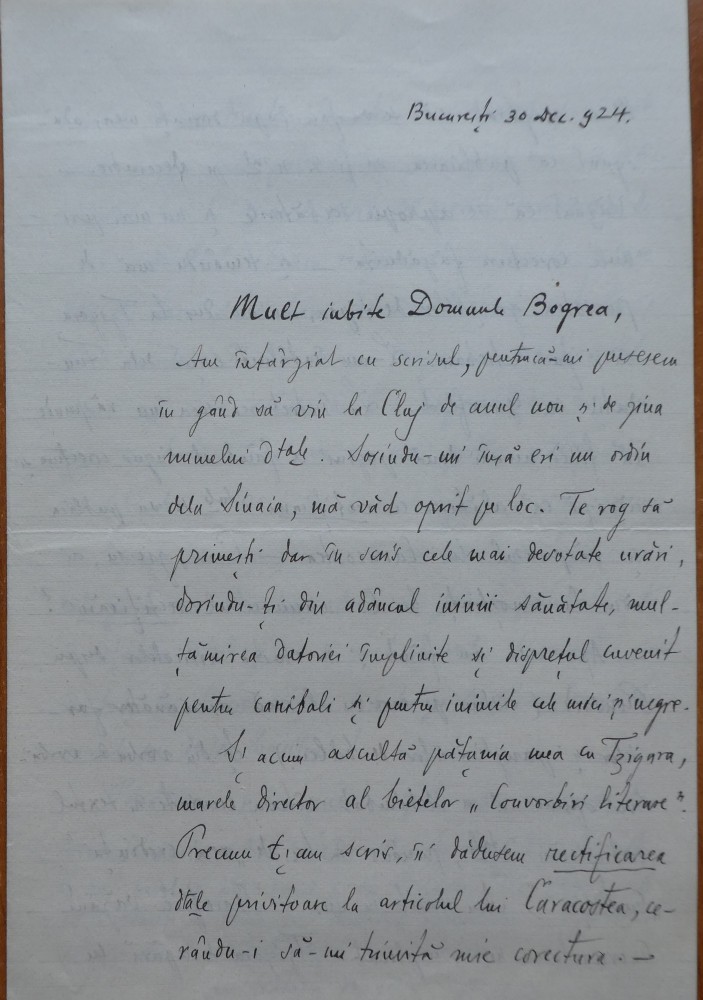 București 30 Dec. 924.
Mult iubite Domnule Bogrea,
Am întârziat cu scrisul, pentrucă-mi pusesem
în gând să viu la Cluj de anul nou și de ziua
numelui Dtale. Sosindu-mi însă eri un ordin
dela Sinaia, mă văd oprit pe loc. Te rog să
primești dar în scris cele mai devotate urări,
dorindu-ți din adâncul inimii sănătate, mul-
țămirea datoriei împlinite și disprețul cuvenit
pentru canibali și pentru inimile cele mici și negre.
Și acum ascultă pățania mea cu Tzigara,
marele director al bietelor „Convorbiri literare".
Precum ți-am scris, îi dădusem rectificarea
dtale privitoare la articolul lui Caracostea, ce-
rându-i să-mi trimită mie corectura. —